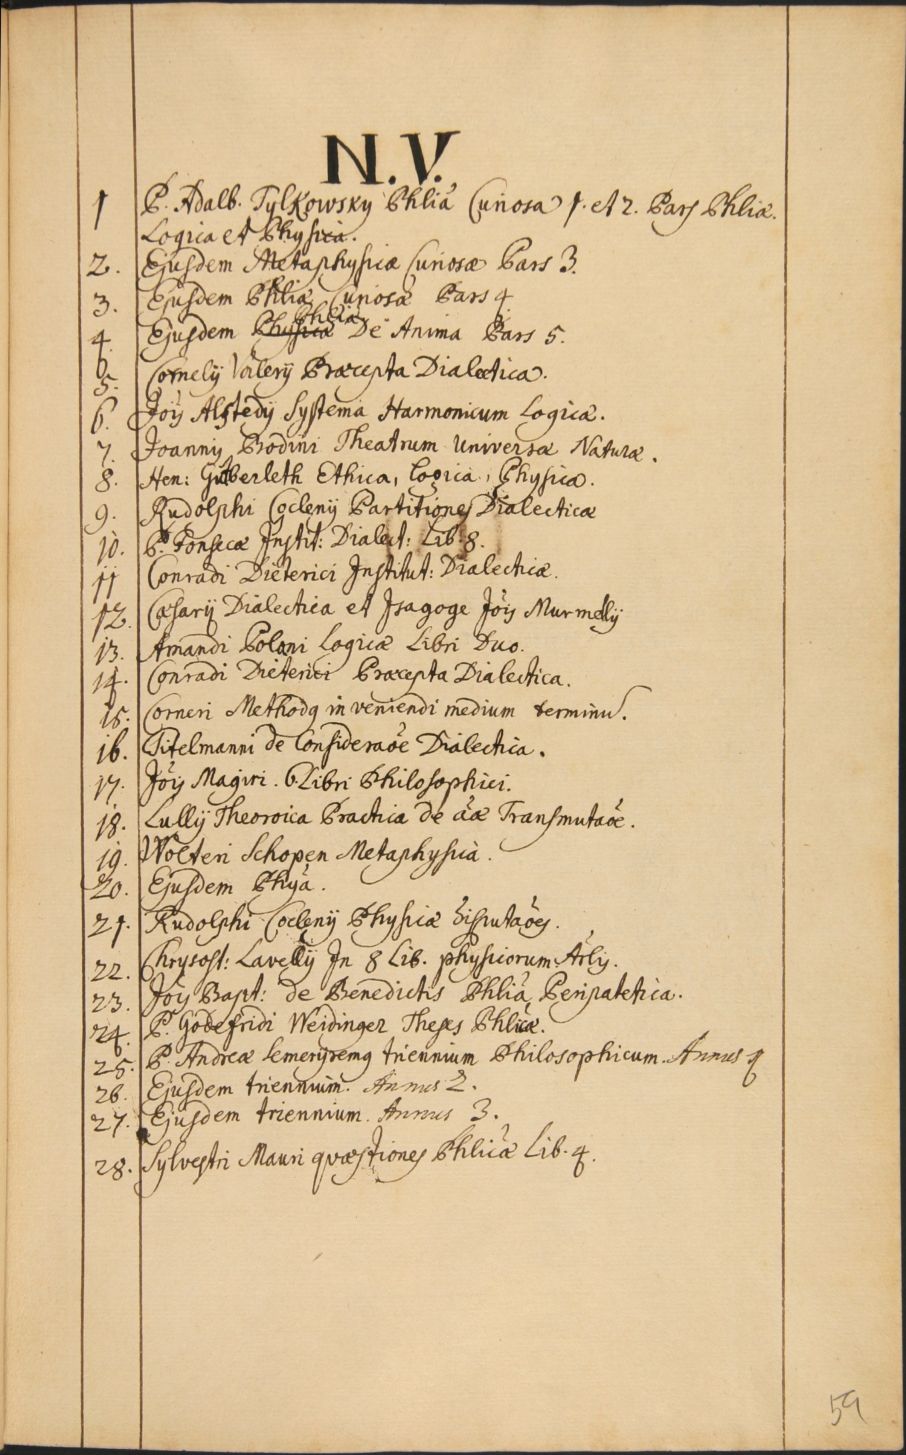 N. V.
1 P. Adalb. Tylkowsky Phliã Curiosa 1. et 2. Pars Phliæ.
Logica et Physica.
2. Ejusdem Metaphysicæ Curiosæ Pars 3.
3. Ejusdem Phliæ Curiosæ Pars 4
Phliã
4. Ejusdem Physicæ De Anima Pars 5.
5. Cornelij Valerij Præcepta Dialectica.
6. Jõis Alstedij Systema Harmonicum Logicæ.
7. Joannis Bodini Theatrum Universæ Naturæ.
8. Hen: Gutberleth Ethica, Logica, Physica.
9. Rudolphi Goclenij Partitiones Dialecticæ
10. P. Fonsecæ Instit: Dialect: Lib. 8.
11 Conradi Dieterici Institut: Dialecticæ.
12. Cæsarij Dialectica et Isagoge Jõis Murmelij
13. Amandi Polani Logicæ Libri Duo.
14. Conradi Dieterici Præcepta Dialectica.
15. Corneri Methodg inveniendi medium terminũ.
16. Titelmanni de Consideraõe Dialectica.
17. Jõis Magiri. 6. Libri Philosophici.
18. Lullij Theoroica Practica de ãæ Transmutaõe.
19. Wolteri Schopen Metaphysica.
20. Ejusdem Phyã.
21. Rudolphi Goclenij Physicæ Disputaões.
22. Chrysost: Lavellij In 8 Lib. physicorum Arlis.
23. Jõis Bapt: de Benedictis Phliã Peripatetica.
24. P. Godefridi Weidinger Theses Phlicæ.
25. P. Andreæ Semerỹremg triennium Philosophicum. Annus 1
26. Ejusdem triennium. Annus 2.
27. Ejusdem triennium. Annus 3.
28. Sylvestri Mauri quæstiones Phlicæ Lib. 4.
59